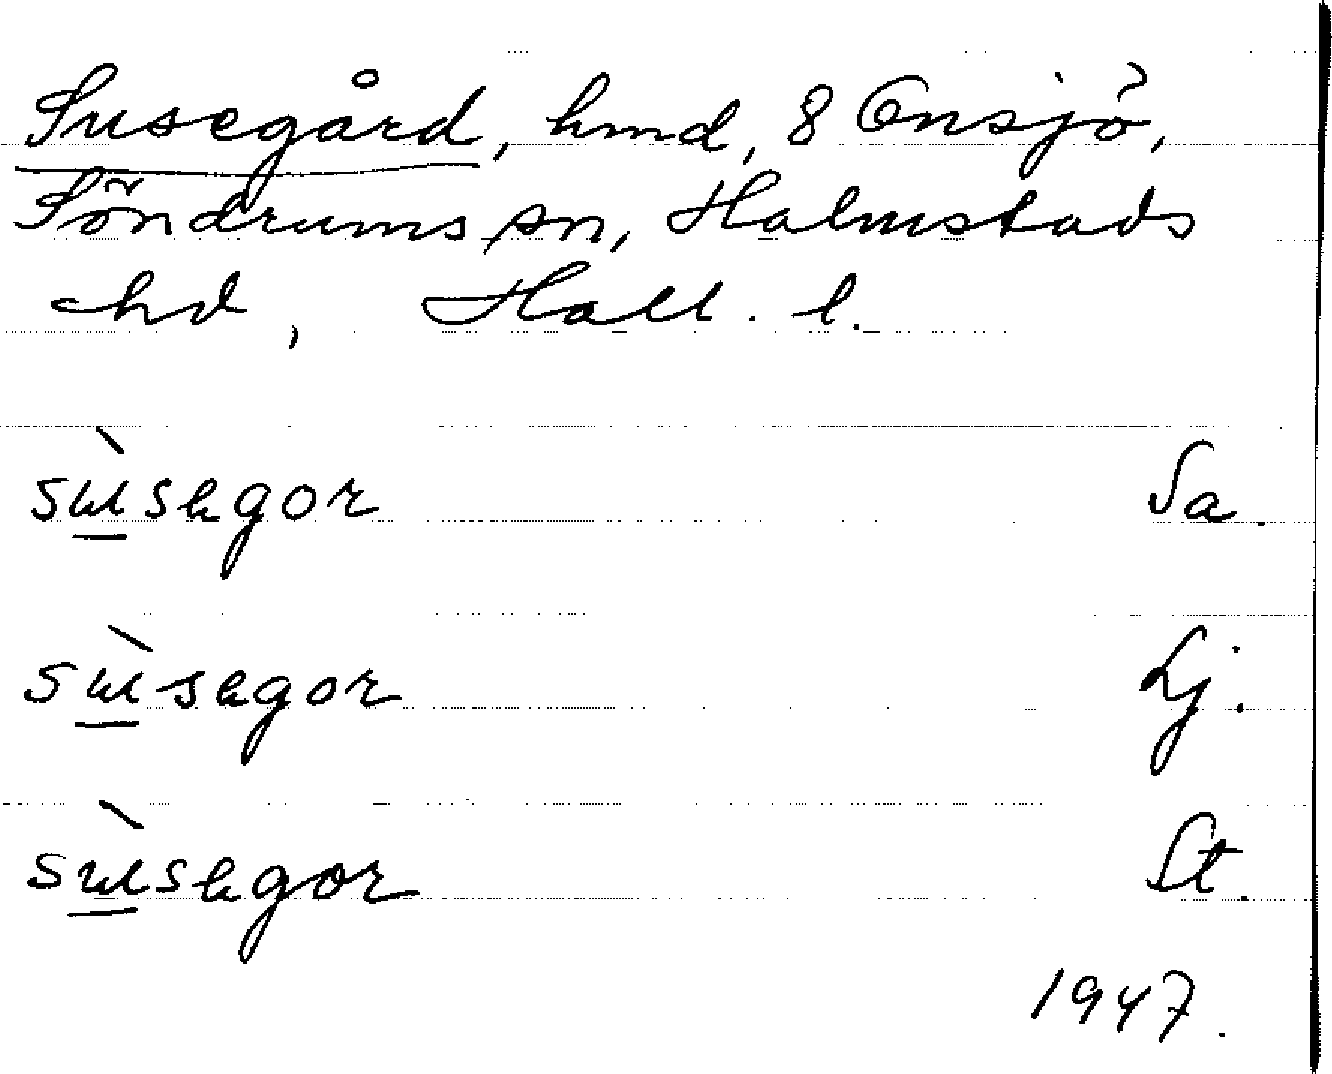 Susegård, hmd, 8 Ensjö,
Söndrums sn, Halmstads
hd, Hall. l.
sùsegor Sa.
sùsegor Lj.
sùsegor St.
1947.